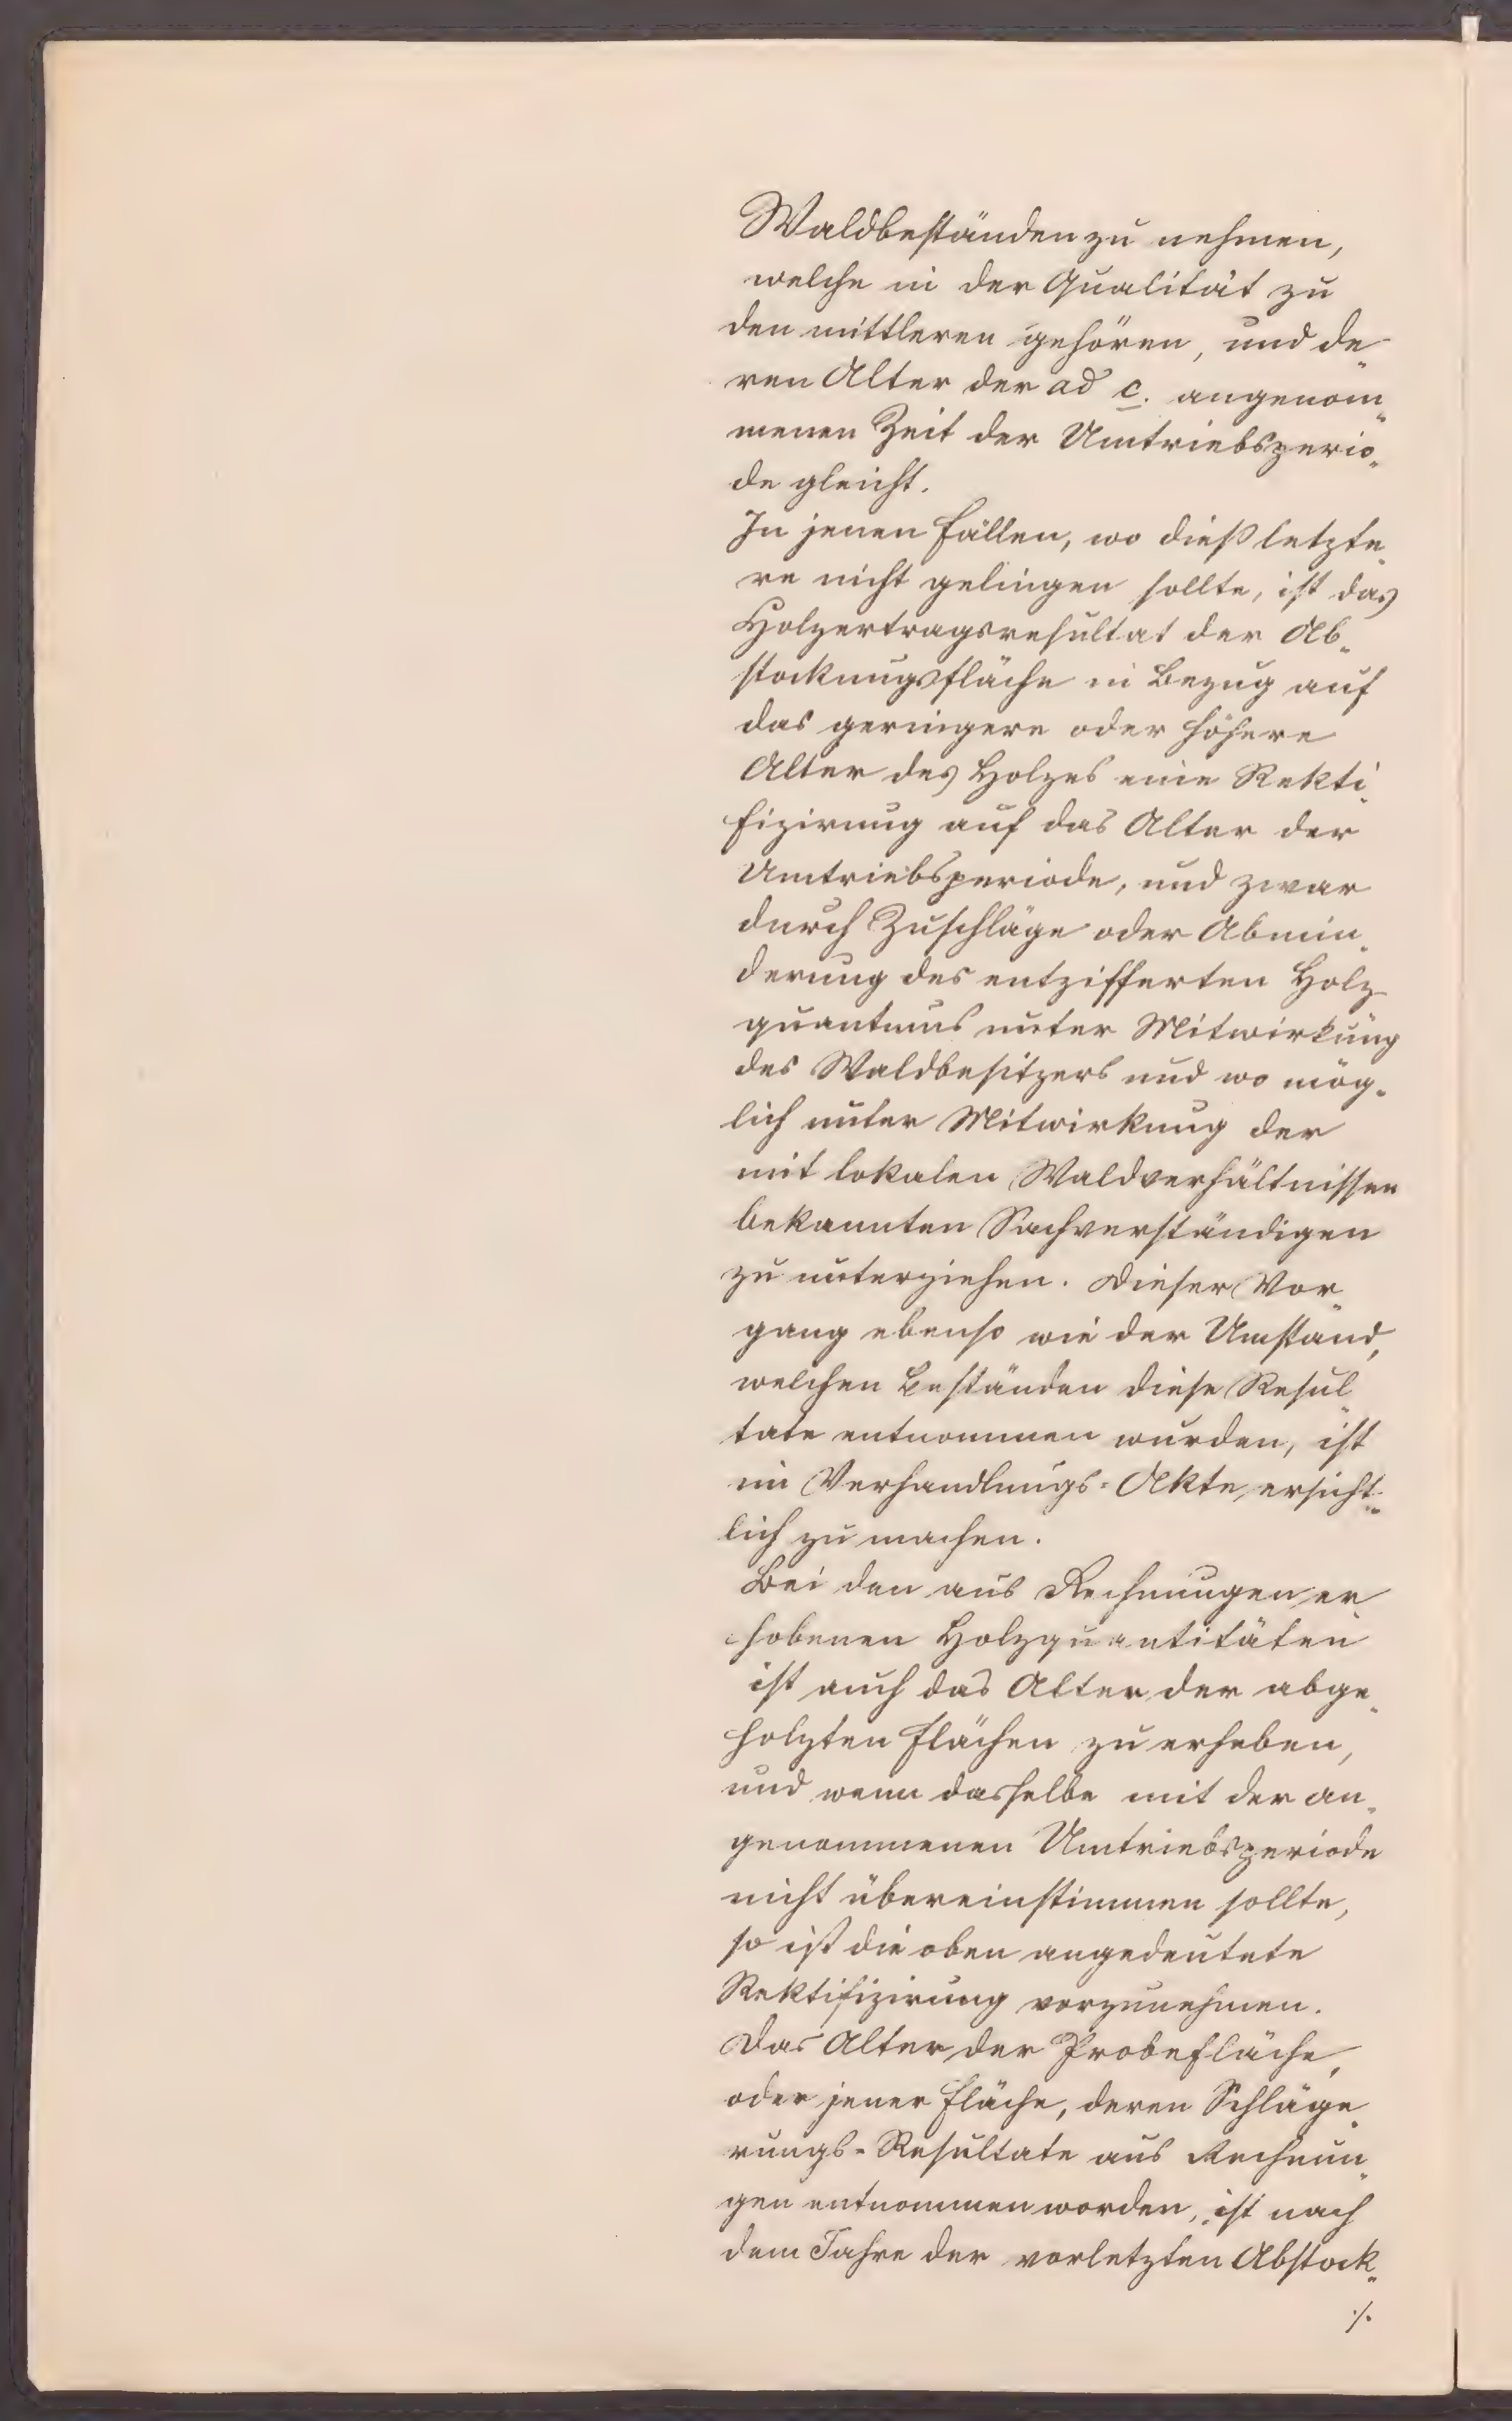 Waldbeständen zu nehmen,
welche in der Qualität zu
den mittleren gehören, und de„
ren Alter der ad c. angenom„
menen Zeit der Umtriebsperio„
de gleicht.
In jenen Fällen, wo dieß letzte„
re nicht gelingen sollte, ist das
Holzertragsresultat der Ab„
stockungsfläche in Bezug auf
das geringere oder höhere
Alter des Holzes eine Rekti„
fizirung auf das Alter der
Umtriebsperiode, und zwar
durch Zuschläge oder Abmin„
derung des entzifferten Holz„
quantums unter Mitwirkung
des Waldbesitzers und wo mög„
lich unter Mitwirkung der
mit lokalen Waldverhältnissen
bekannten Sachverständigen
zu unterziehen. Dieser Vor„
gang ebenso wie der Umstand,
welchen Beständen diese Resul„
tate entnommen wurden, ist
im Verhandlungs=Akte ersicht„
lich zu machen.
Bei den aus Rechnungen er„
hobenen Holzquantitäten
ist auch das Alter der abge„
holzten Flächen zu erheben,
und wenn dasselbe mit der an„
genommenen Umtriebsperiode
nicht übereinstimmen sollte,
so ist die oben angedeutete
Rektifizirung vorzunehmen.
Das Alter der Probefläche,
oder jener Fläche, deren Schläge„
rungs=Resultate aus Rechnun„
gen entnommen worden, ist nach
dem Jahre der vorletzten Abstock„
./.